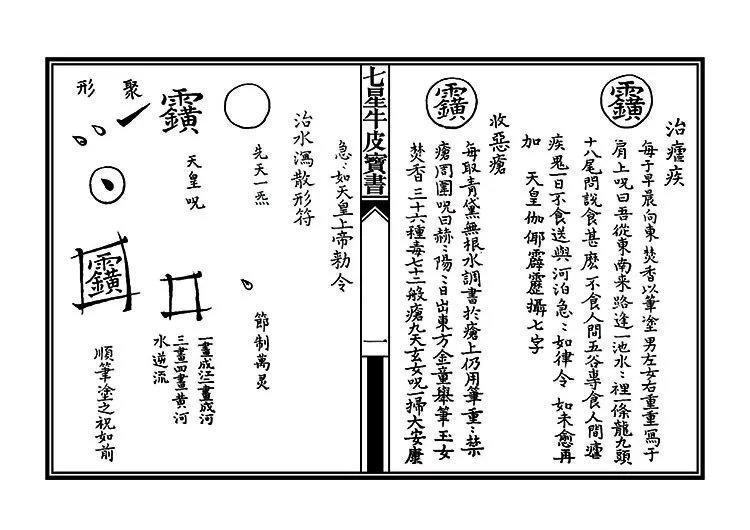 治瘧疾
每于早晨向東焚香以筆塗男左女右重重寫于
肩上呪曰吾從東南来路逢一池水〻裡一條龍九頭
十八尾問說食甚麽不食人間五谷專食人間瘧
疾鬼一日不食送與河泊急〻如律令 如未愈再
加 天皇伽倻霹靂攝七字
收惡瘡
每取青黛無根水調書於瘡上仍用筆重〻禁
瘡周圍呪曰赫〻陽〻日出東方金童舉筆玉女
焚香三十六種毒七十二般瘡九天玄女呪一掃大安康
七星牛皮寶書
一
急〻如天皇上帝勑令
治水瀉散形符
先天一炁
節制萬灵
天皇呪
一畫成江二畫成河
三畫四畫黄河
水逆流
聚形
順筆塗之祝如前